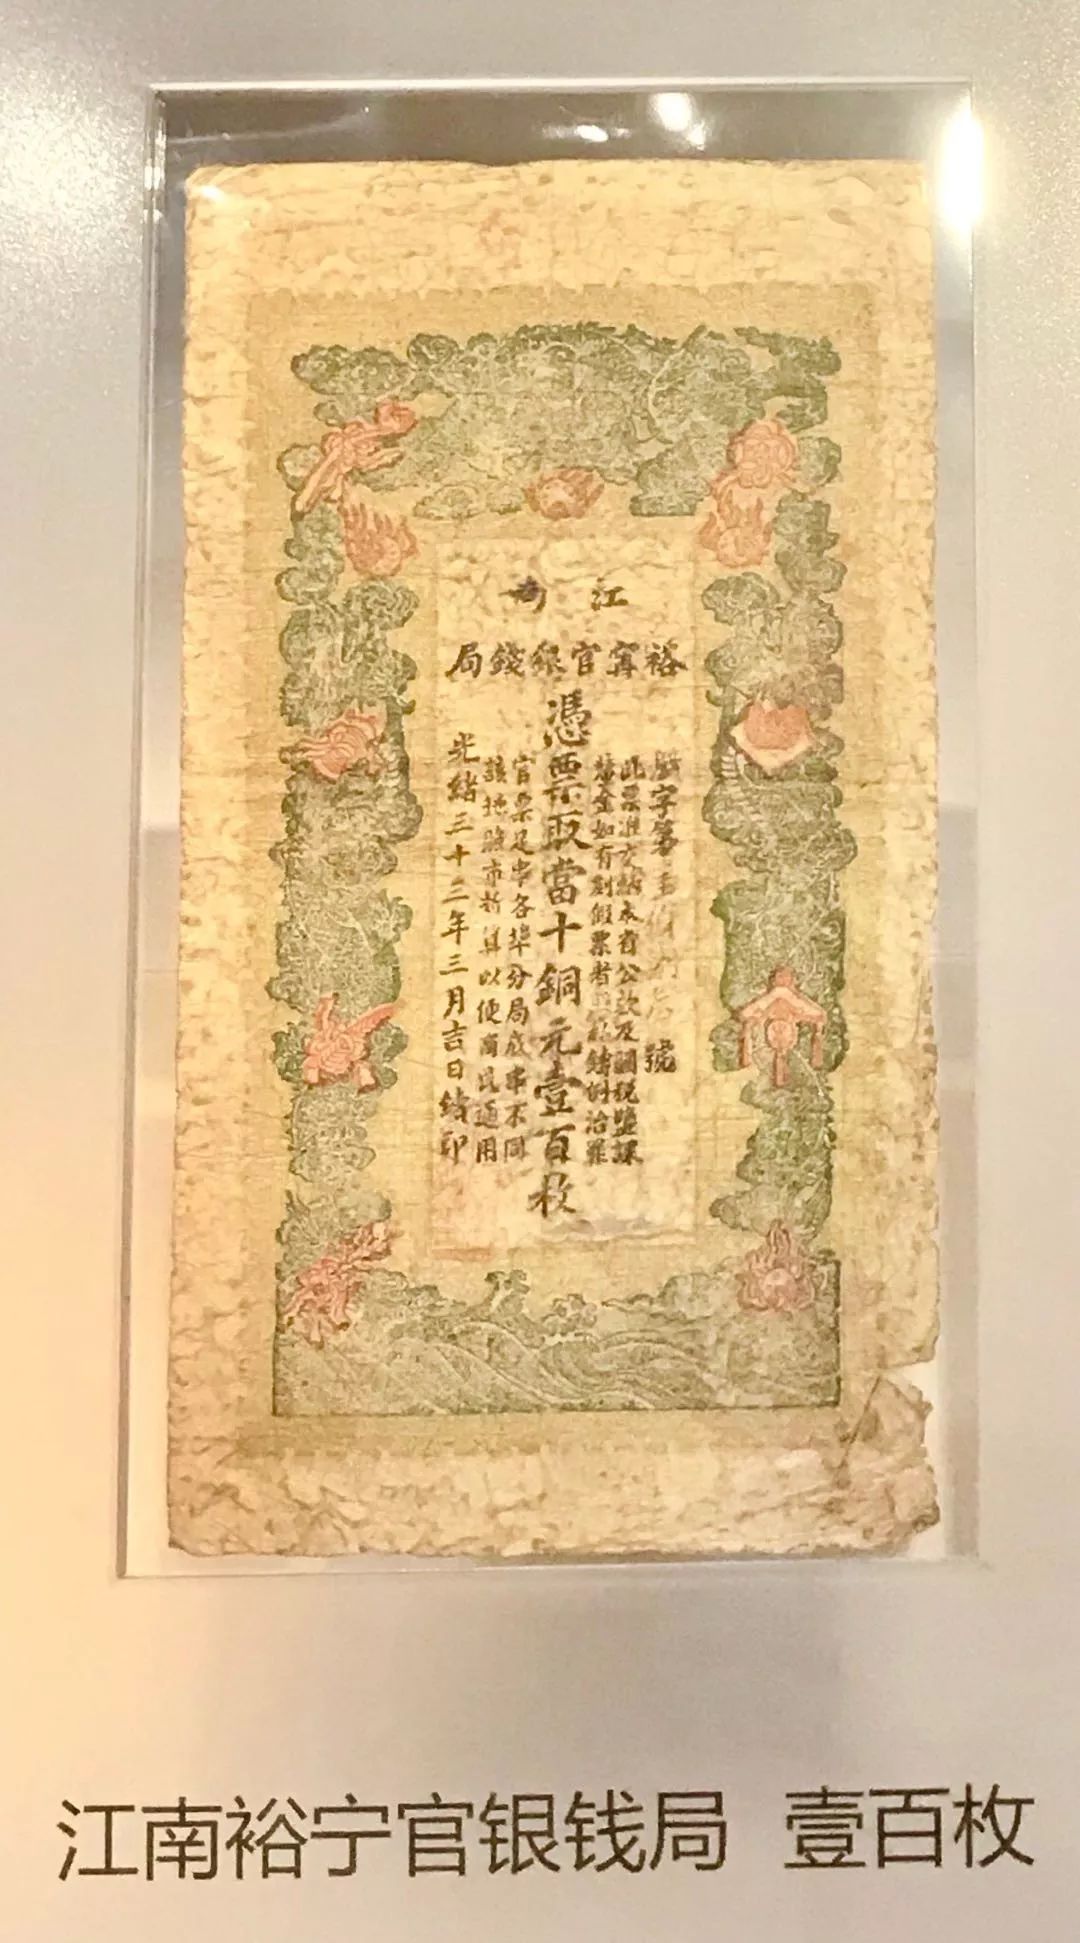 江南
裕寧官銀錢局
字第 號
此票准交納本省公款及關稅鹽課
釐金如有刻假票者 私鑄例治罪
憑票取當十銅元壹百枚
官票足串各埠分局底串不同
該地隨市折算以便商民通用
光緒三十三年三月吉日 印
江南裕宁官银钱局 壹百枚